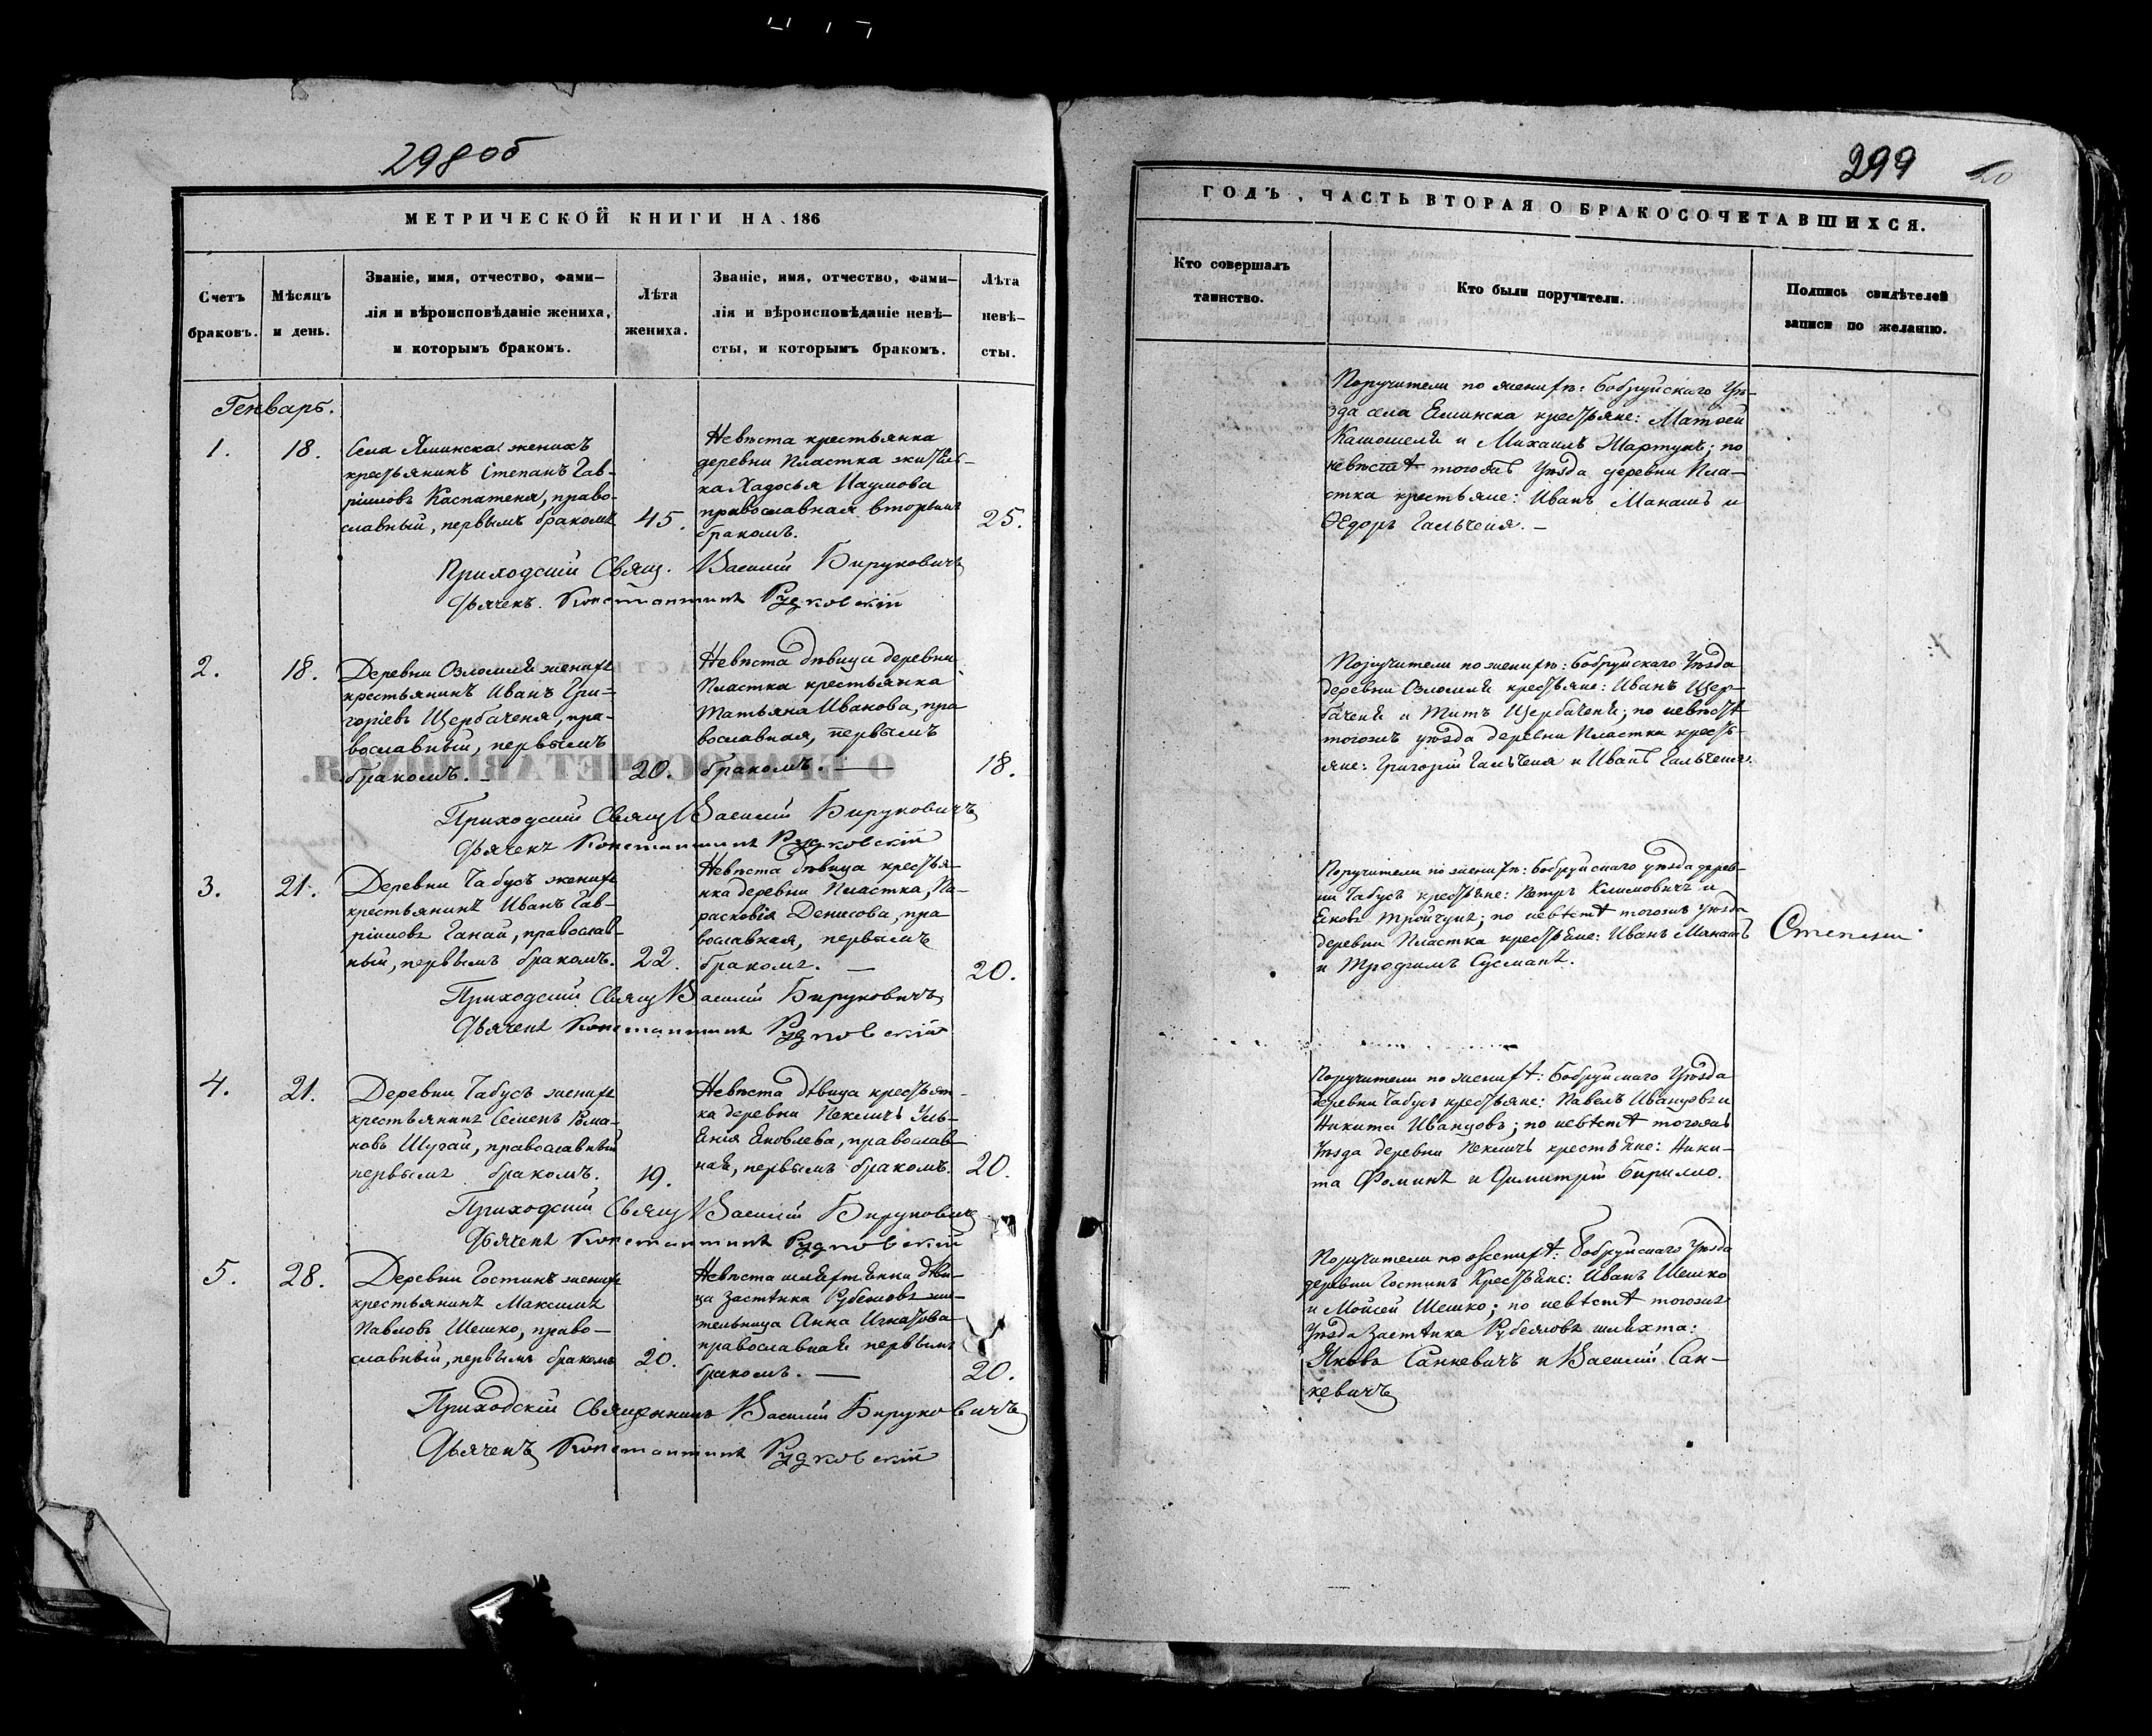 298об
МЕТРИЧЕСКОЙ КНИГИ НА 186
Счетъ
браковъ.
Мѣсяцъ
и день.
Званіе, имя, отчество, фами-
лія и вѣроисповѣданіе жениха,
и которымъ бракомъ.
Лѣта
жениха.
Званіе, имя, отчество, фами-
лія и вѣроисповѣданіе невѣ-
сты, и которымъ бракомъ.
Лѣта
невѣ-
сты.
Генварь.
1.
18.
Села Яминска женихъ
крестьянинъ Степанъ Гав-
ріиловъ Каспатеня, право-
славный, первымъ бракомъ
45.
Невѣста крестьянка
деревни Пластка жительс-
ка Хадосья Наумова
православная вторымъ
бракомъ.
25.
Приходскій Свящ. Василій Бируковичъ
Дьячекъ Константинъ Рудковскій
2.
18.
Деревни Озломля женихъ
крестьянинъ Иванъ Гри-
горіевъ Щербаченя, пра-
вославный, первымъ
бракомъ. -
20.
Невѣста дѣвица деревни
Пластка крестьянка
Татьяна Иванова, пра
вославная, первымъ
бракомъ. —
18.
Приходскій Свящ Василій Бируковичъ
Дьячекъ Константинъ Рудковскій
3.
21.
Деревни Чабусъ женихъ
крестьянинъ Иванъ Гав-
ріиловъ Ганай, православ-
ный, первымъ бракомъ.
22.
Невѣста дѣвица крестья-
нка деревни Пластка, Па-
расковія Денисова, пра
вославная, первымъ
бракомъ. —
20.
Приходскій Свящ Василій Бируковичъ
Дьячекъ Константинъ Рудковскій
4.
21.
Деревни Чабусъ женихъ
крестьянинъ Семенъ Рома-
новъ Шугай, православный
первымъ бракомъ.
19.
Невѣста дѣвица крестьян-
ка деревни Пекличъ Уль-
янія Яковлева, православ-
ная, первымъ бракомъ.
20.
Приходскій Свящ Василій Бируковичъ
Дьячекъ Константинъ Рудковскій
5.
28.
Деревни Гостинъ женихъ
крестьянинъ Максимъ
Павловъ Шешко, право-
славный, первымъ бракомъ
20.
Невѣста шляхтянка дѣви-
ца застѣнка Рубежовъ жи-
тельница Анна Игнатова
православная первымъ
бракомъ. —
20.
Приходскій Священникъ Василій Бируковичъ
Дьячекъ Константинъ Рудковскій
299
20
ГОДЪ, ЧАСТЬ ВТОРАЯ О БРАКОСОЧЕТАВШИХСЯ.
Кто совершалъ
таинство.
Кто были поручители.
Подпись свидѣтелей
записи по желанію.
Поручители по женихѣ: Бобруйскаго Уѣ-
зда села Яминска крестьяне: Матѳей
и Михаилъ Мартунъ; по
невѣстѣ тогожъ Уѣзда деревни Пла-
стка крестьяне: Иванъ Манашъ и
Ѳедоръ Гальченя. —
Поручители по женихѣ: Бобруйскаго Уѣзда
деревни Озломля крестьяне: Иванъ Щер-
баченя и Титъ Щербаченя; по невѣстѣ
тогожъ уѣзда деревни Пластка кресть-
яне: Григорій Гальченя и Иванъ Гальченя.
Поручители по женихѣ: Бобруйскаго уѣзда дерев-
ни Чабусъ крестьяне: Петръ Климовичъ и
Яковъ Тройчукъ; по невѣстѣ тогожъ уѣзда
деревни Пластка крестьяне: Иванъ Манашъ
и Трофимъ Сусманъ.
Поручители по женихѣ: Бобруйскаго Уѣзда
деревни Чабусъ крестьяне: Павелъ Иванцовъ и
Никита Иванцовъ; по невѣстѣ тогожъ
Уѣзда деревни Пекличъ крестьяне: Ники-
та Фоминъ и Димитрій Бирилло.
Поручители по женихѣ: Бобруйскаго Уѣзда
деревни Гостинъ Крестьяне: Иванъ Шешко
и Мойсей Шешко; по невѣстѣ тогожъ
Уѣзда застѣнка Рубежовъ шляхта:
Яковъ Санкевичъ и Василій Сан-
кевичъ